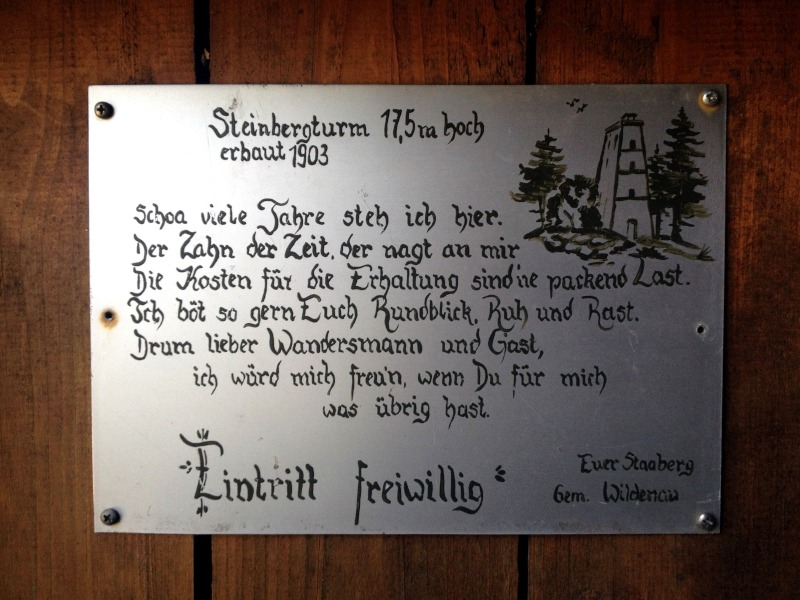 Steinbergturm 17,5m hoch
erbaut 1903
Schoa viele Jahre steh ich hier.
Der Zahn der Zeit, der nagt an mir
Die Kosten für die Erhaltung sind'ne packend Last.
Ich böt so gern Euch Rundblick, Ruh und Rast.
Drum lieber Wandersmann und Gast,
ich würd mich freu'n, wenn Du für mich
was übrig hast.
Eintritt freiwillig
Euer Staaberg
Gem. Wildenau